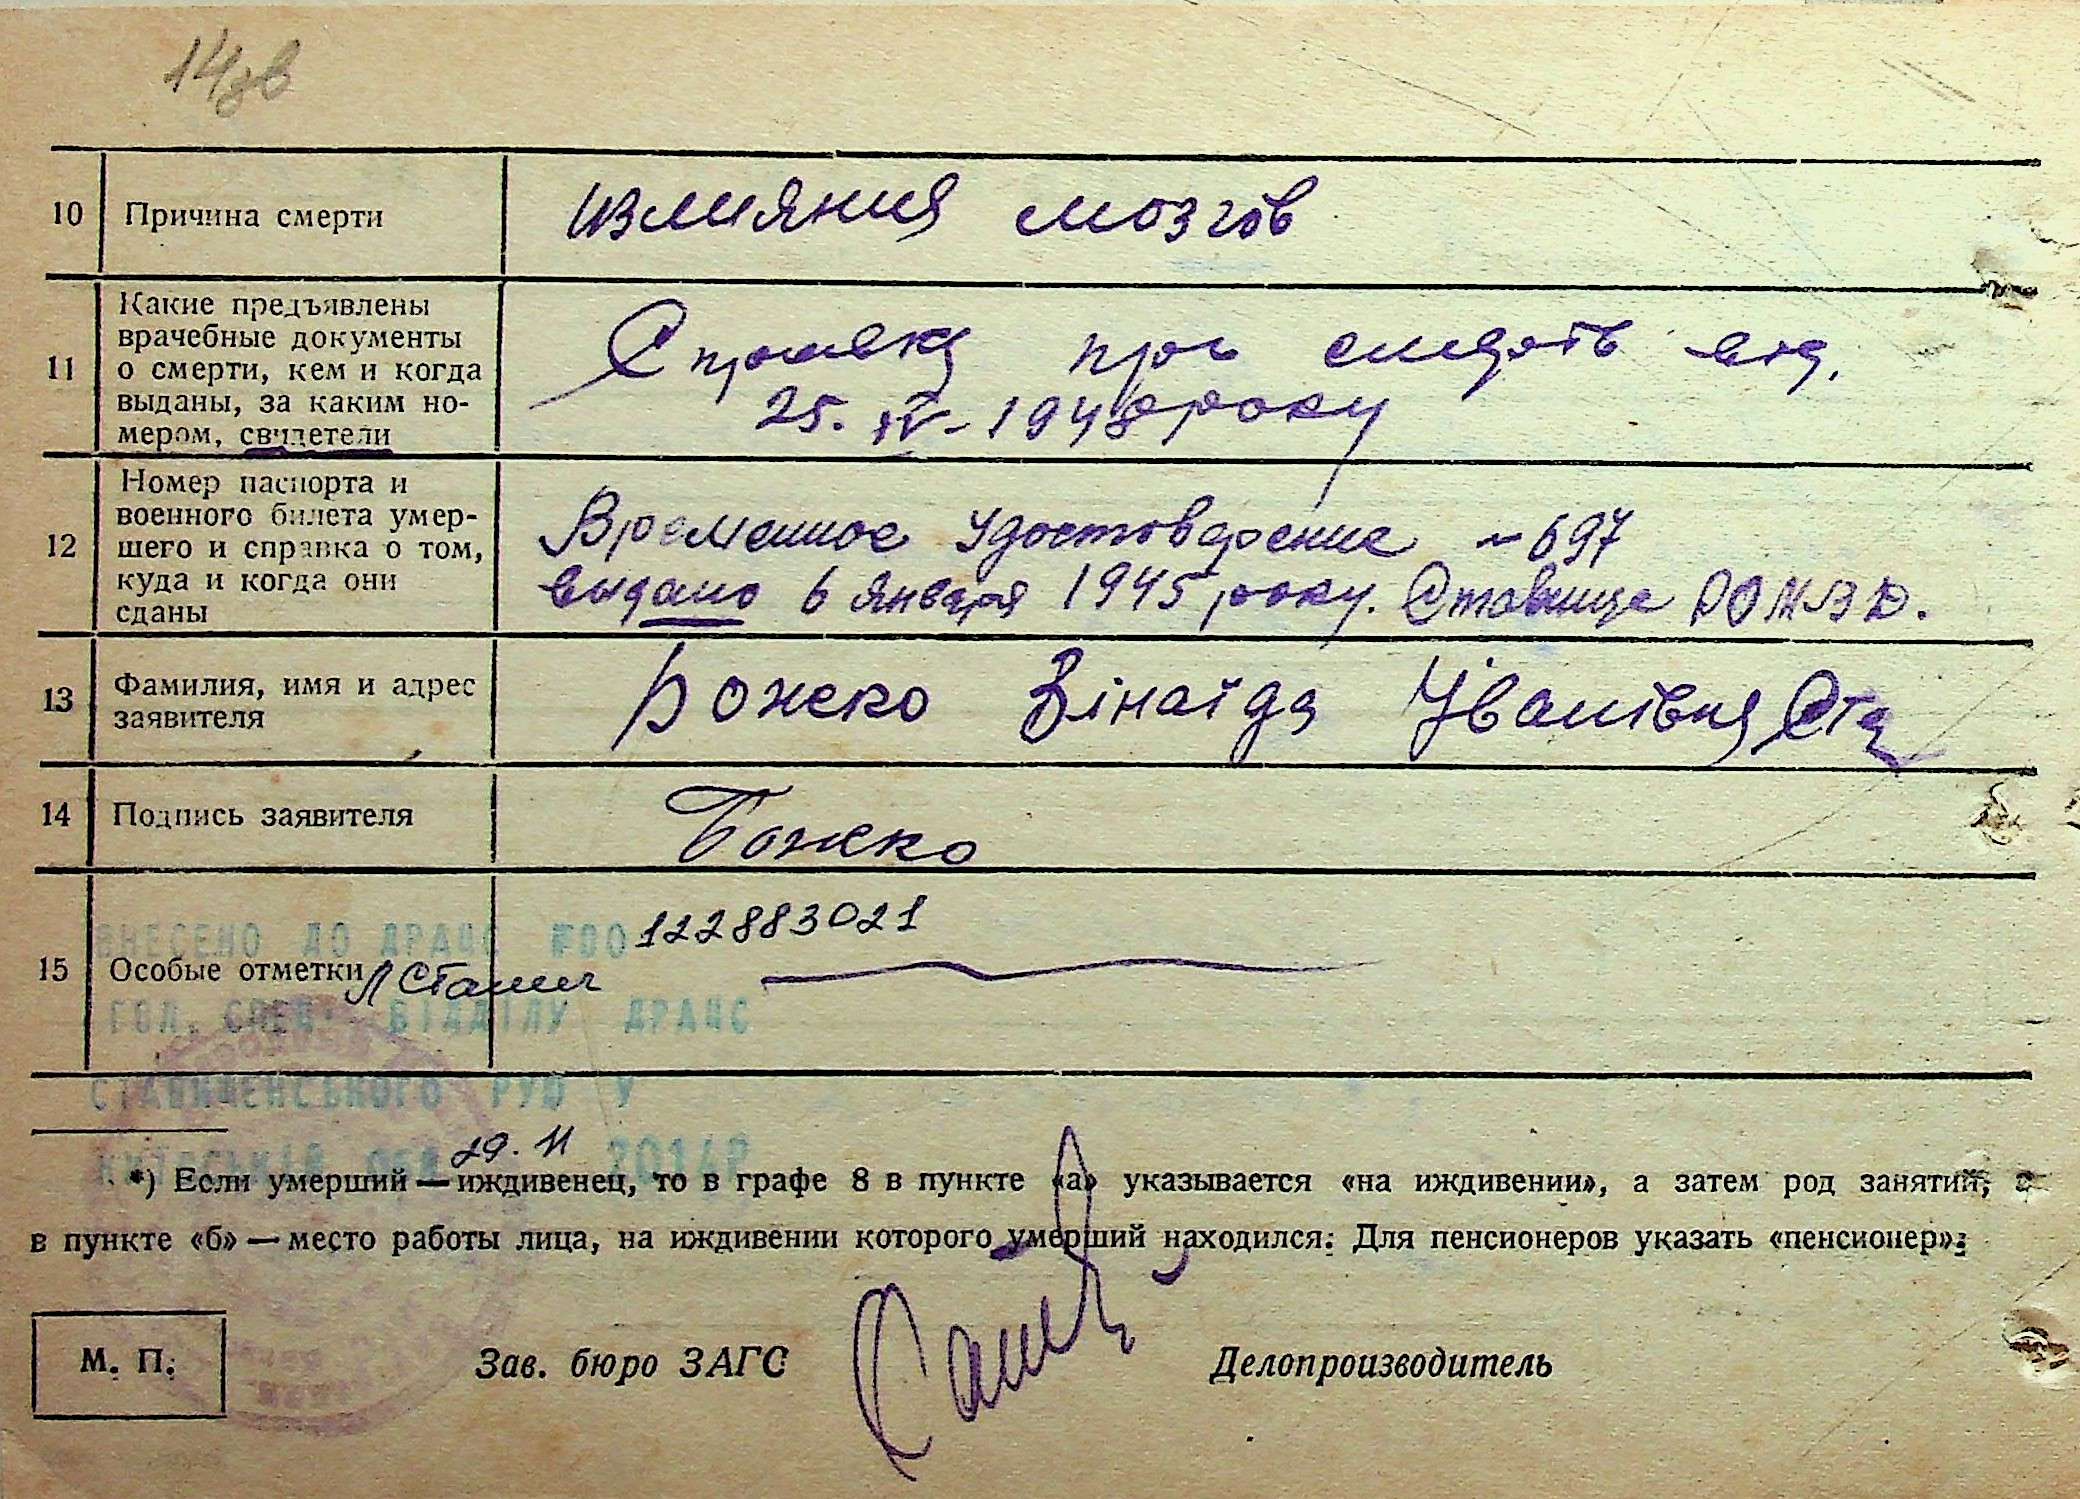 14зв
10 Причина смерти излияния мозгов
11 Какие предъявлены
врачебные документы
о смерти, кем и когда
выданы, за каким но-
мером, свидетели
Справка про смерть від.
25. IV - 1948 року
12 Номер паспорта и
военного билета умер-
шего и справка о том,
куда и когда они
сданы
Временное удостоверение №697
выдано 6 января 1945 року. Ставище РОМВД.
13 Фамилия, имя и адрес
заявителя
Божко Зінаїда Іванівна
14 Подпись заявителя Божко
15 Особые отметки
ВНЕСЕНО ДО ДРАЦС №00 122883021
ГОЛ. СПЕЦ. ВІДДІЛУ ДРАЦС
СТАВИЩЕНСЬКОГО РУЮ У
КИЇВСЬКІЙ ОБЛ 29.11 2014Р
*) Если умерший — иждивенец, то в графе 8 в пункте «а» указывается «на иждивении», а затем род занятий, а
в пункте «б» — место работы лица, на иждивении которого умерший находился. Для пенсионеров указать «пенсионер».
М. П. Зав. бюро ЗАГС Делопроизводитель